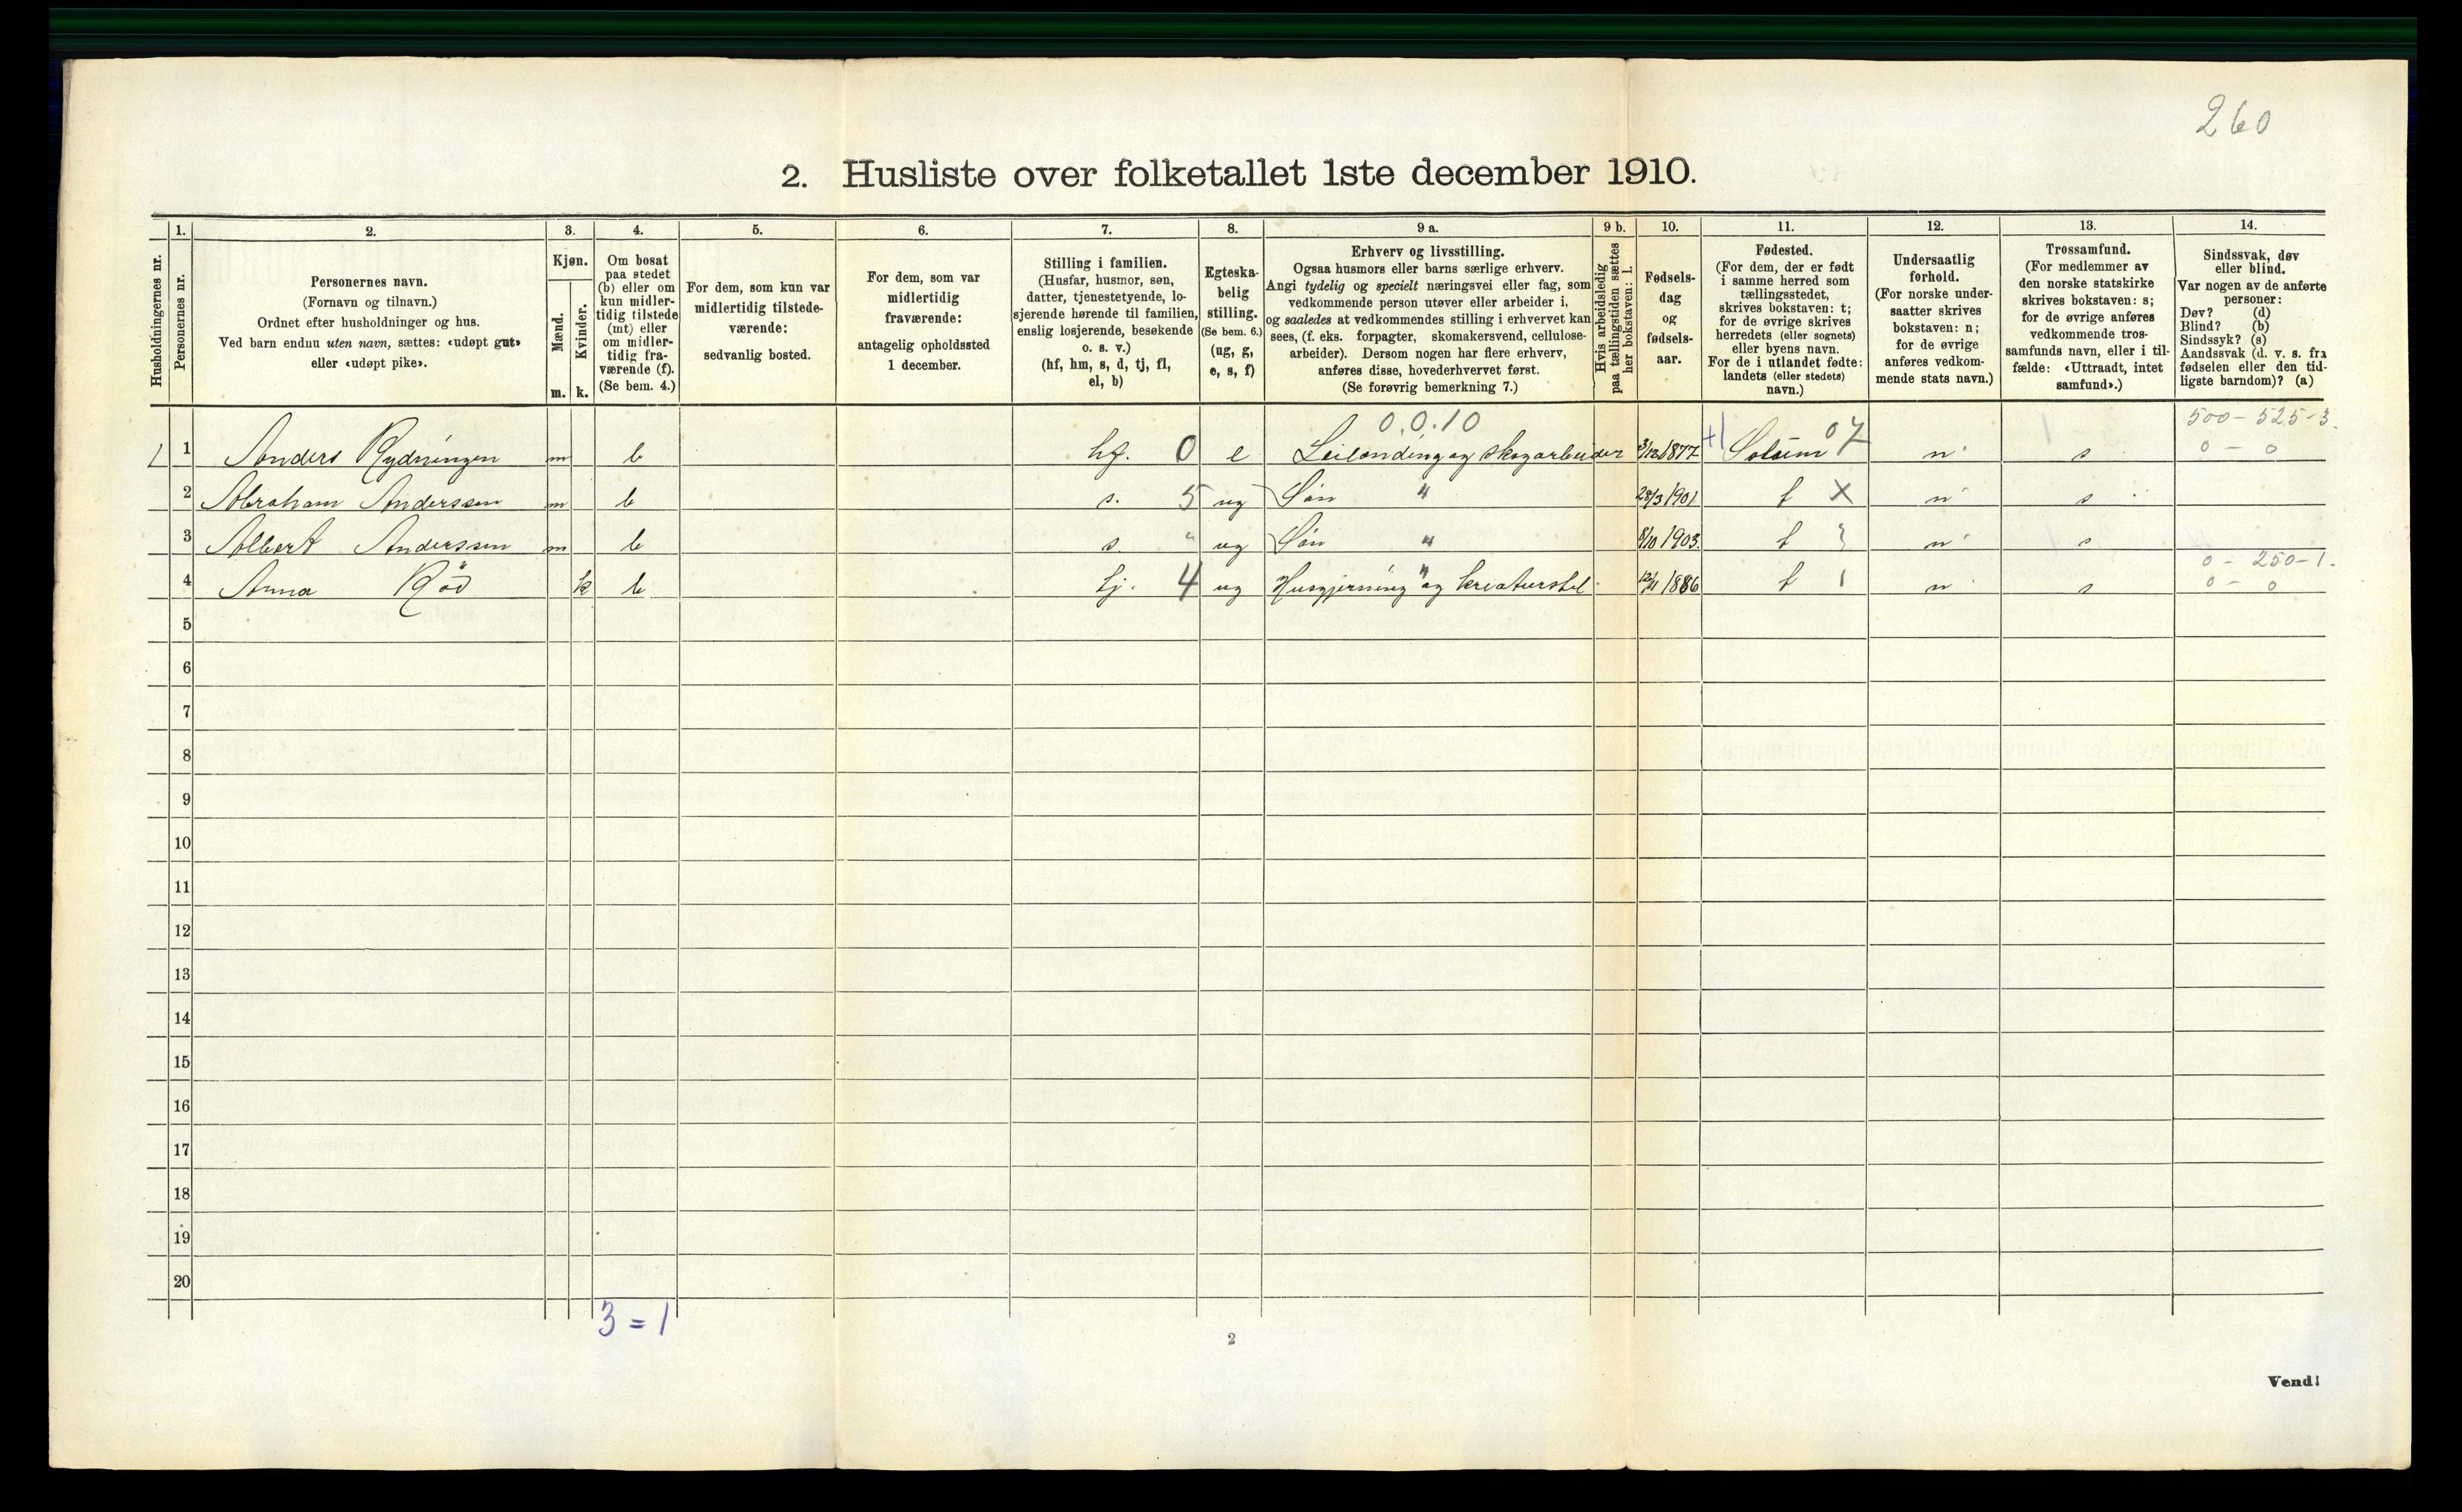 260
2. Husliste over folketallet 1ste december 1910.
Husholdningernes nr.
1.
Personernes nr.
2.
Personernes navn.
(Fornavn og tilnavn.)
Ordnet efter husholdninger og hus.
Ved barn endnu uten navn, sættes: «udøpt gut»
eller «udøpt pike».
3.
Kjøn.
Mænd.
Kvinder.
m. k.
4.
Om bosat
paa stedet
(b) eller om
kun midler-
tidig tilstede
(mt) eller
om midler-
tidig fra-
værende (f).
(Se bem. 4.)
5.
For dem, som kun var
midlertidig tilstede-
værende:
sedvanlig bosted.
6.
For dem, som var
midlertidig
fraværende:
antagelig opholdssted
1 december.
7.
Stilling i familien.
(Husfar, husmor, søn,
datter, tjenestetyende, lo-
sjerende hørende til familien,
enslig losjerende, besøkende
o. s. v.)
(hf, hm, s, d, tj, fl,
el, b)
8.
Egteska-
belig
stilling.
(Se bem. 6.)
(ug, g,
e, s, f)
9 a.
Erhverv og livsstilling.
Ogsaa husmors eller barns særlige erhverv.
Angi tydelig og specielt næringsvei eller fag, som
vedkommende person utøver eller arbeider i,
og saaledes at vedkommendes stilling i erhvervet kan
sees, (f. eks. forpagter, skomakersvend, cellulose-
arbeider). Dersom nogen har flere erhverv,
anføres disse, hovederhvervet først.
(Se forøvrig bemerkning 7.)
9 b.
Hvis arbeidsledig
paa tællingstiden sættes
her bokstaven: l.
10.
Fødsels-
dag
og
fødsels-
aar.
11.
Fødested.
(For dem, der er født
i samme herred som
tællingsstedet,
skrives bokstaven: t;
for de øvrige skrives
herredets (eller sognets)
eller byens navn.
For de i utlandet fødte:
landets (eller stedets)
navn.)
12.
Undersaatlig
forhold.
(For norske under-
saatter skrives
bokstaven: n;
for de øvrige
anføres vedkom-
mende stats navn.)
13.
Trossamfund.
(For medlemmer av
den norske statskirke
skrives bokstaven: s;
for de øvrige anføres
vedkommende tros-
samfunds navn, eller i til-
fælde: «Uttraadt, intet
samfund».)
14.
Sindssvak, døv
eller blind.
Var nogen av de anførte
personer:
Døv? (d)
Blind? (b)
Sindssyk? (s)
Aandssvak (d. v. s. fra
fødselen eller den tid-
ligste barndom)? (a)
0.0.10 500-525-3.
1 1 Anders Rydningen m b hf. 0 e Leilending og skogarbeider 3/12 1877 +1 Solum 07 n s 0-0
2 Abraham Anderssen m b s. 5 ug Søn " 28/3 1901 t X n s
3 Albert Anderssen m b s. " ug Søn " 8/10 1903. t n s
0-250-1.
4 Anna Röd k b tj. 4 ug Husgjerning og kreaturstel 12/11 1886 t 1 n s 0-0
5
6
7
8
9
10
11
12
13
14
15
16
17
18
19
20
3=1
2
Vend!